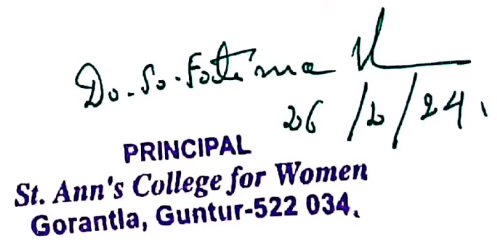 Dr. Sr. Fatima
26/2/24.
PRINCIPAL
St. Ann's College for Women
Gorantla, Guntur-522 034.